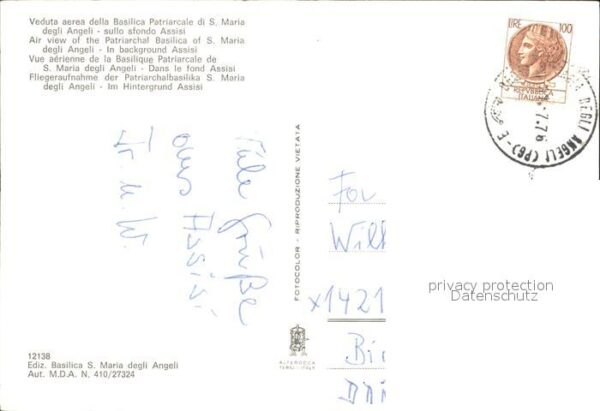 Veduta aerea della Basilica Patriarcale di S. Maria
degli Angeli - sullo sfondo Assisi
Air view of the Patriarchal Basilica of S. Maria
degli Angeli - In background Assisi
Vue aérienne de la Basilique Patriarcale de
S. Maria degli Angeli - Dans le fond Assisi
Fliegeraufnahme der Patriarchalbasilika S. Maria
degli Angeli - Im Hintergrund Assisi
LIRE 100
REPVBBLICA
ITALIANA
DEGLI ANGELI (PG) - E
7.76
Viele Grüße
aus
Assisi
FOTOCOLOR - RIPRODUZIONE VIETATA
Will
x1421
privacy protection
Datenschutz
ALTEROCCA
TERNI-ITALY
12138
Ediz. Basilica S. Maria degli Angeli
Aut. M.D.A. N. 410/27324